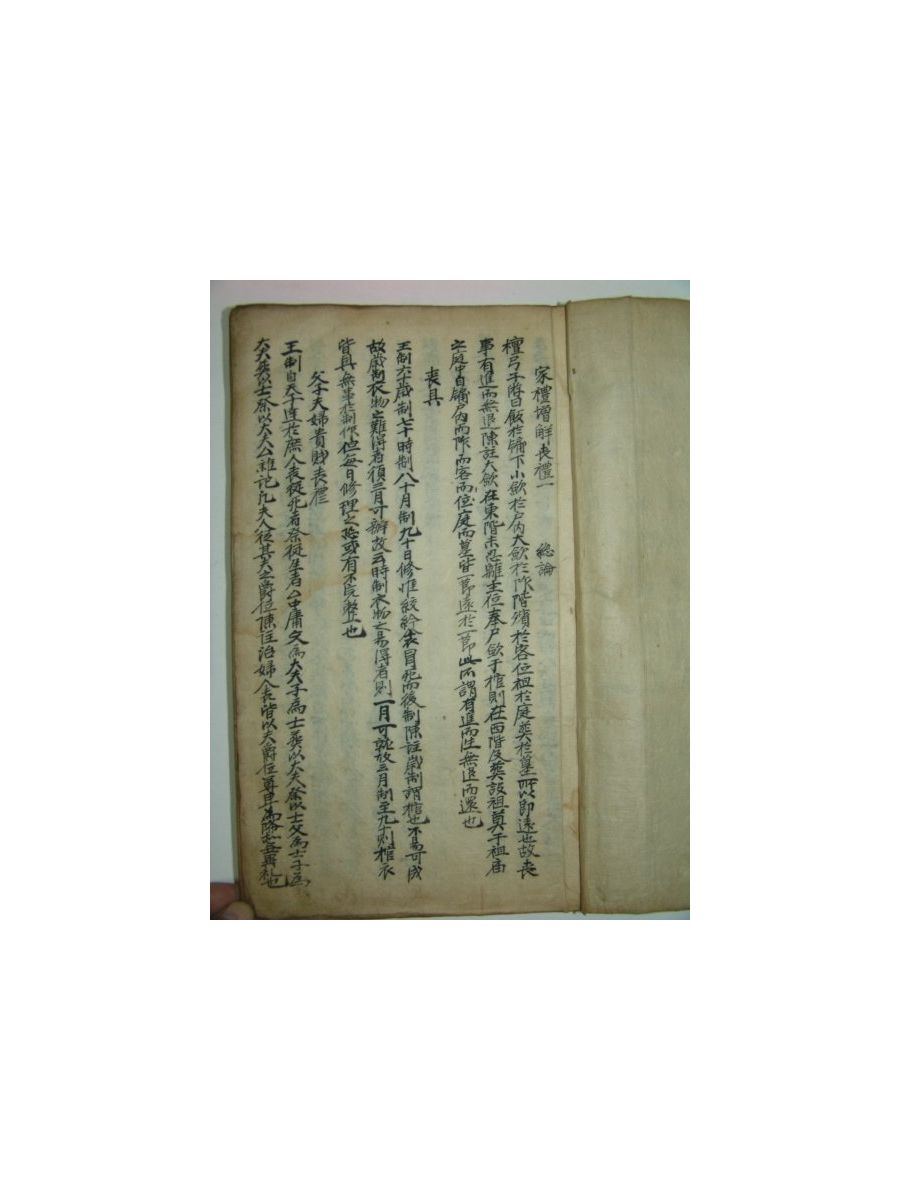 家禮增解喪禮一 總論
檀弓子游曰飯於牖下小斂於戶內大斂於阼階殯於客位祖於庭葬於墓所以即遠也故喪
事有進而無退陳註大斂在東階未忍離主位奉尸斂于棺則在西階及葬設祖奠于祖庙
之庭中自牖戶內而阼而客而位庭而墓皆一節遠於一節此所謂有進而往無退而還也
喪具
王制六十歲制七十時制八十月制九十日修惟絞紟衾冒死而後制陳註歲制謂棺也不易可成
故歲制衣物之難得者須三月可辦故云時制衣物之易得者則一月可就故三月制至九十則棺衣
皆具無事於制作但每日修理之恐或有不完整也
父子夫婦貴賤喪禮
王制自天子達於庶人喪從死者祭從生者中庸父為大夫子為士葬以大夫祭以士父為士子為
大夫葬以士祭以大夫雜記凡夫人從其夫之爵位陳註治婦人喪皆以夫爵位尊卑為降無異礼也